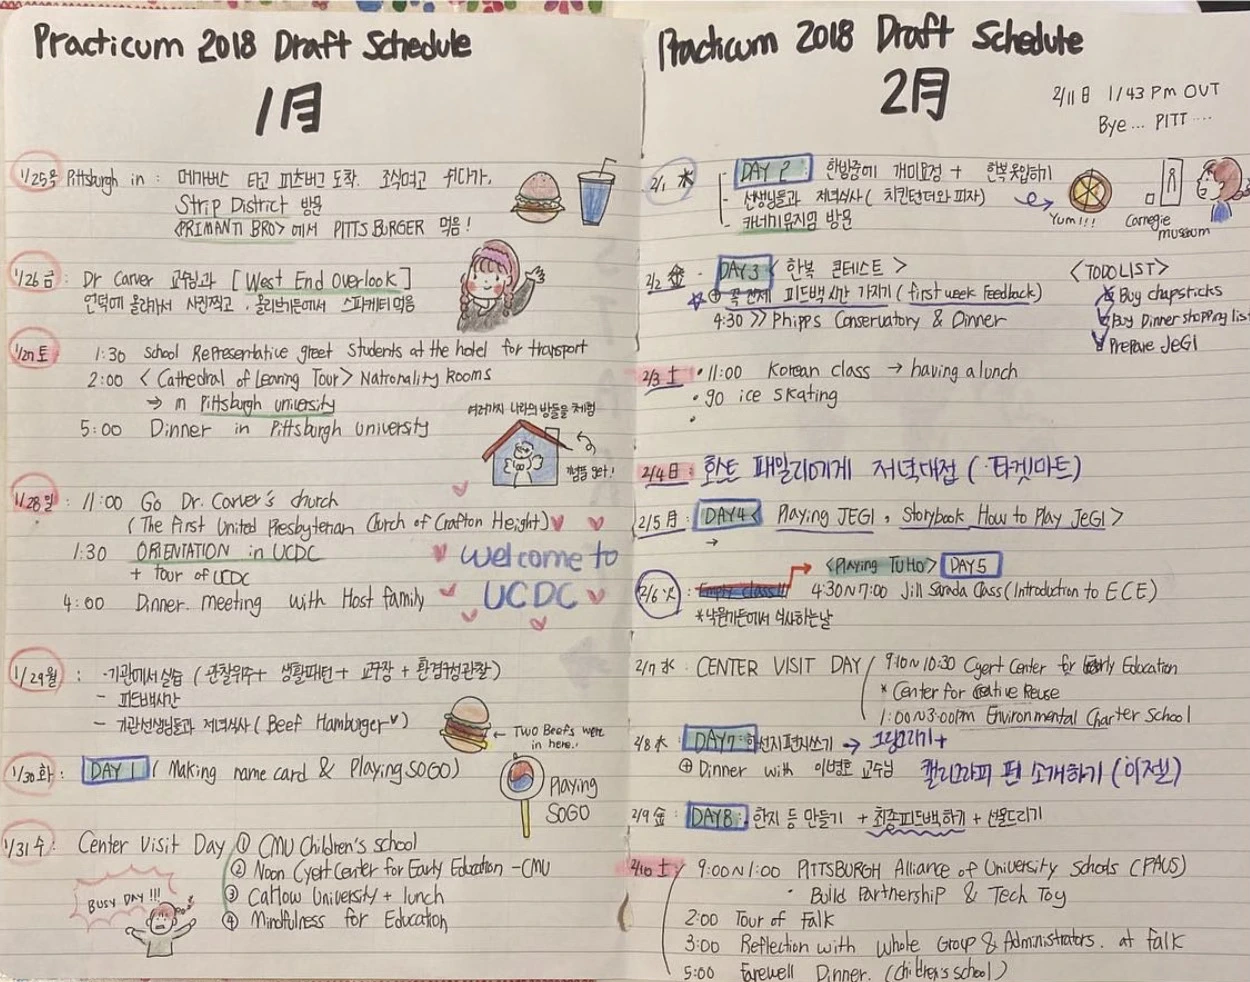 Practicum 2018 Draft Schedule
1月
1/25목 Pittsburgh in : 메가버스 타고 피츠버그 도착. 조식먹고 쉬다가,
Strip District 방문
<PRIMANTI BRO> 에서 PITTSBURGER 먹음!
1/26금 : Dr Carver 교수님과 [West End Overlook]
언덕에 올라가서 사진찍고, 올리브가든에서 스파게티 먹음
1/27토 1:30 School Representative greet students at the hotel for transport
2:00 <Cathedral of Learing Tour> Nationality Rooms
→ in Pittsburgh university
5:00 Dinner in Pittsburgh university
여러가지 나라의 방들을 체험
기념품 get!
1/28일 : 11:00 Go Dr. Carver's church
(The First United Presbyterian Church of Crafton Height)
1:30 ORIENTATION in UCDC
+ tour of UCDC
4:00 Dinner meeting with Host family
welcome to
UCDC
1/29월 : - 기관에서 실습 (관찰위주 + 생활패턴 + 교구장 + 환경구성관찰)
- 피드백시간
- 기관선생님들과 저녁식사 (Beef Hamburger)
← Two Beefs were
in here!
1/30화 : DAY 1 (Making name card & Playing SOGO)
Playing
SOGO
1/31수 : Center Visit Day ① CMU Children's school
② Noon Cyert Center for Early Education - CMU
③ Carlow University + lunch
④ Mindfulness for Education
BUSY DAY !!!
Practicum 2018 Draft Schedule
2月
2/11日 1/43 Pm OUT
Bye... PITT ....
2/1 水 - DAY 2 한밤중에 개미요정 + 한복옷입히기
- 선생님들과 저녁식사 (치킨텐더와 피자)
- 카네기뮤지엄 방문
Yum!!!
Carnegie
museum
2/2 金 - DAY 3 <한복 콘테스트>
⊕ 꼭 전체 피드백시간 가지기 (first week Feedback)
4:30 >> Phipps Conservatory & Dinner
<TODOLIST>
Buy chapsticks
Buy Dinner shopping list
Prepare JeGI
2/3 土 • 11:00 Korean class → having a lunch
• go ice skating
•
2/4日 : 호스트 패밀리에게 저녁대접 (타겟마트)
2/5月 : DAY4 <Playing JEGI, Storybook How to Play JeGI>
→
<Playing TUHO> DAY 5
2/6 火 : Empty class!! 4:30~7:00 Jill Sarada Class (Introduction to ECE)
*낙원가든에서 식사하는날
2/7 水 : CENTER VISIT DAY 9:10~10:30 Cyert Center for Early Education
* Center for Creative Reuse
1:00~3:00pm Environmental Charter School
2/8 木 : DAY7: 한선지편지쓰기 → 그림그리기 +
⊕ Dinner with 이병호 교수님 캘리그라피 펜 소개하기 (이젤)
2/9 金 : DAY8: 한지 등 만들기 + 최종피드백하기 + 선물드리기
2/10 土 9:00~1:00 PITTSBURGH Alliance of University Schools (PAUS)
• Build Partnership & Tech Toy
2:00 Tour of Falk
3:00 Reflection with whole Group & Administrators. at falk
5:00 Farewell Dinner. (children's school)